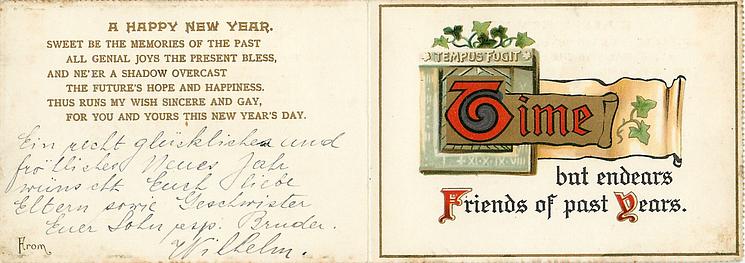 A HAPPY NEW YEAR.
SWEET BE THE MEMORIES OF THE PAST
ALL GENIAL JOYS THE PRESENT BLESS,
AND NE'ER A SHADOW OVERCAST
THE FUTURE'S HOPE AND HAPPINESS.
THUS RUNS MY WISH SINCERE AND GAY,
FOR YOU AND YOURS THIS NEW YEAR'S DAY.
Ein recht glückliches und
fröhliches Neues Jahr
wünscht Euch liebe
Eltern sowie Geschwister
Euer Sohn resp. Bruder.
From Wilhelm.
TEMPUS FUGIT
Time
XI·X·IX·VIII
but endears
Friends of past Years.